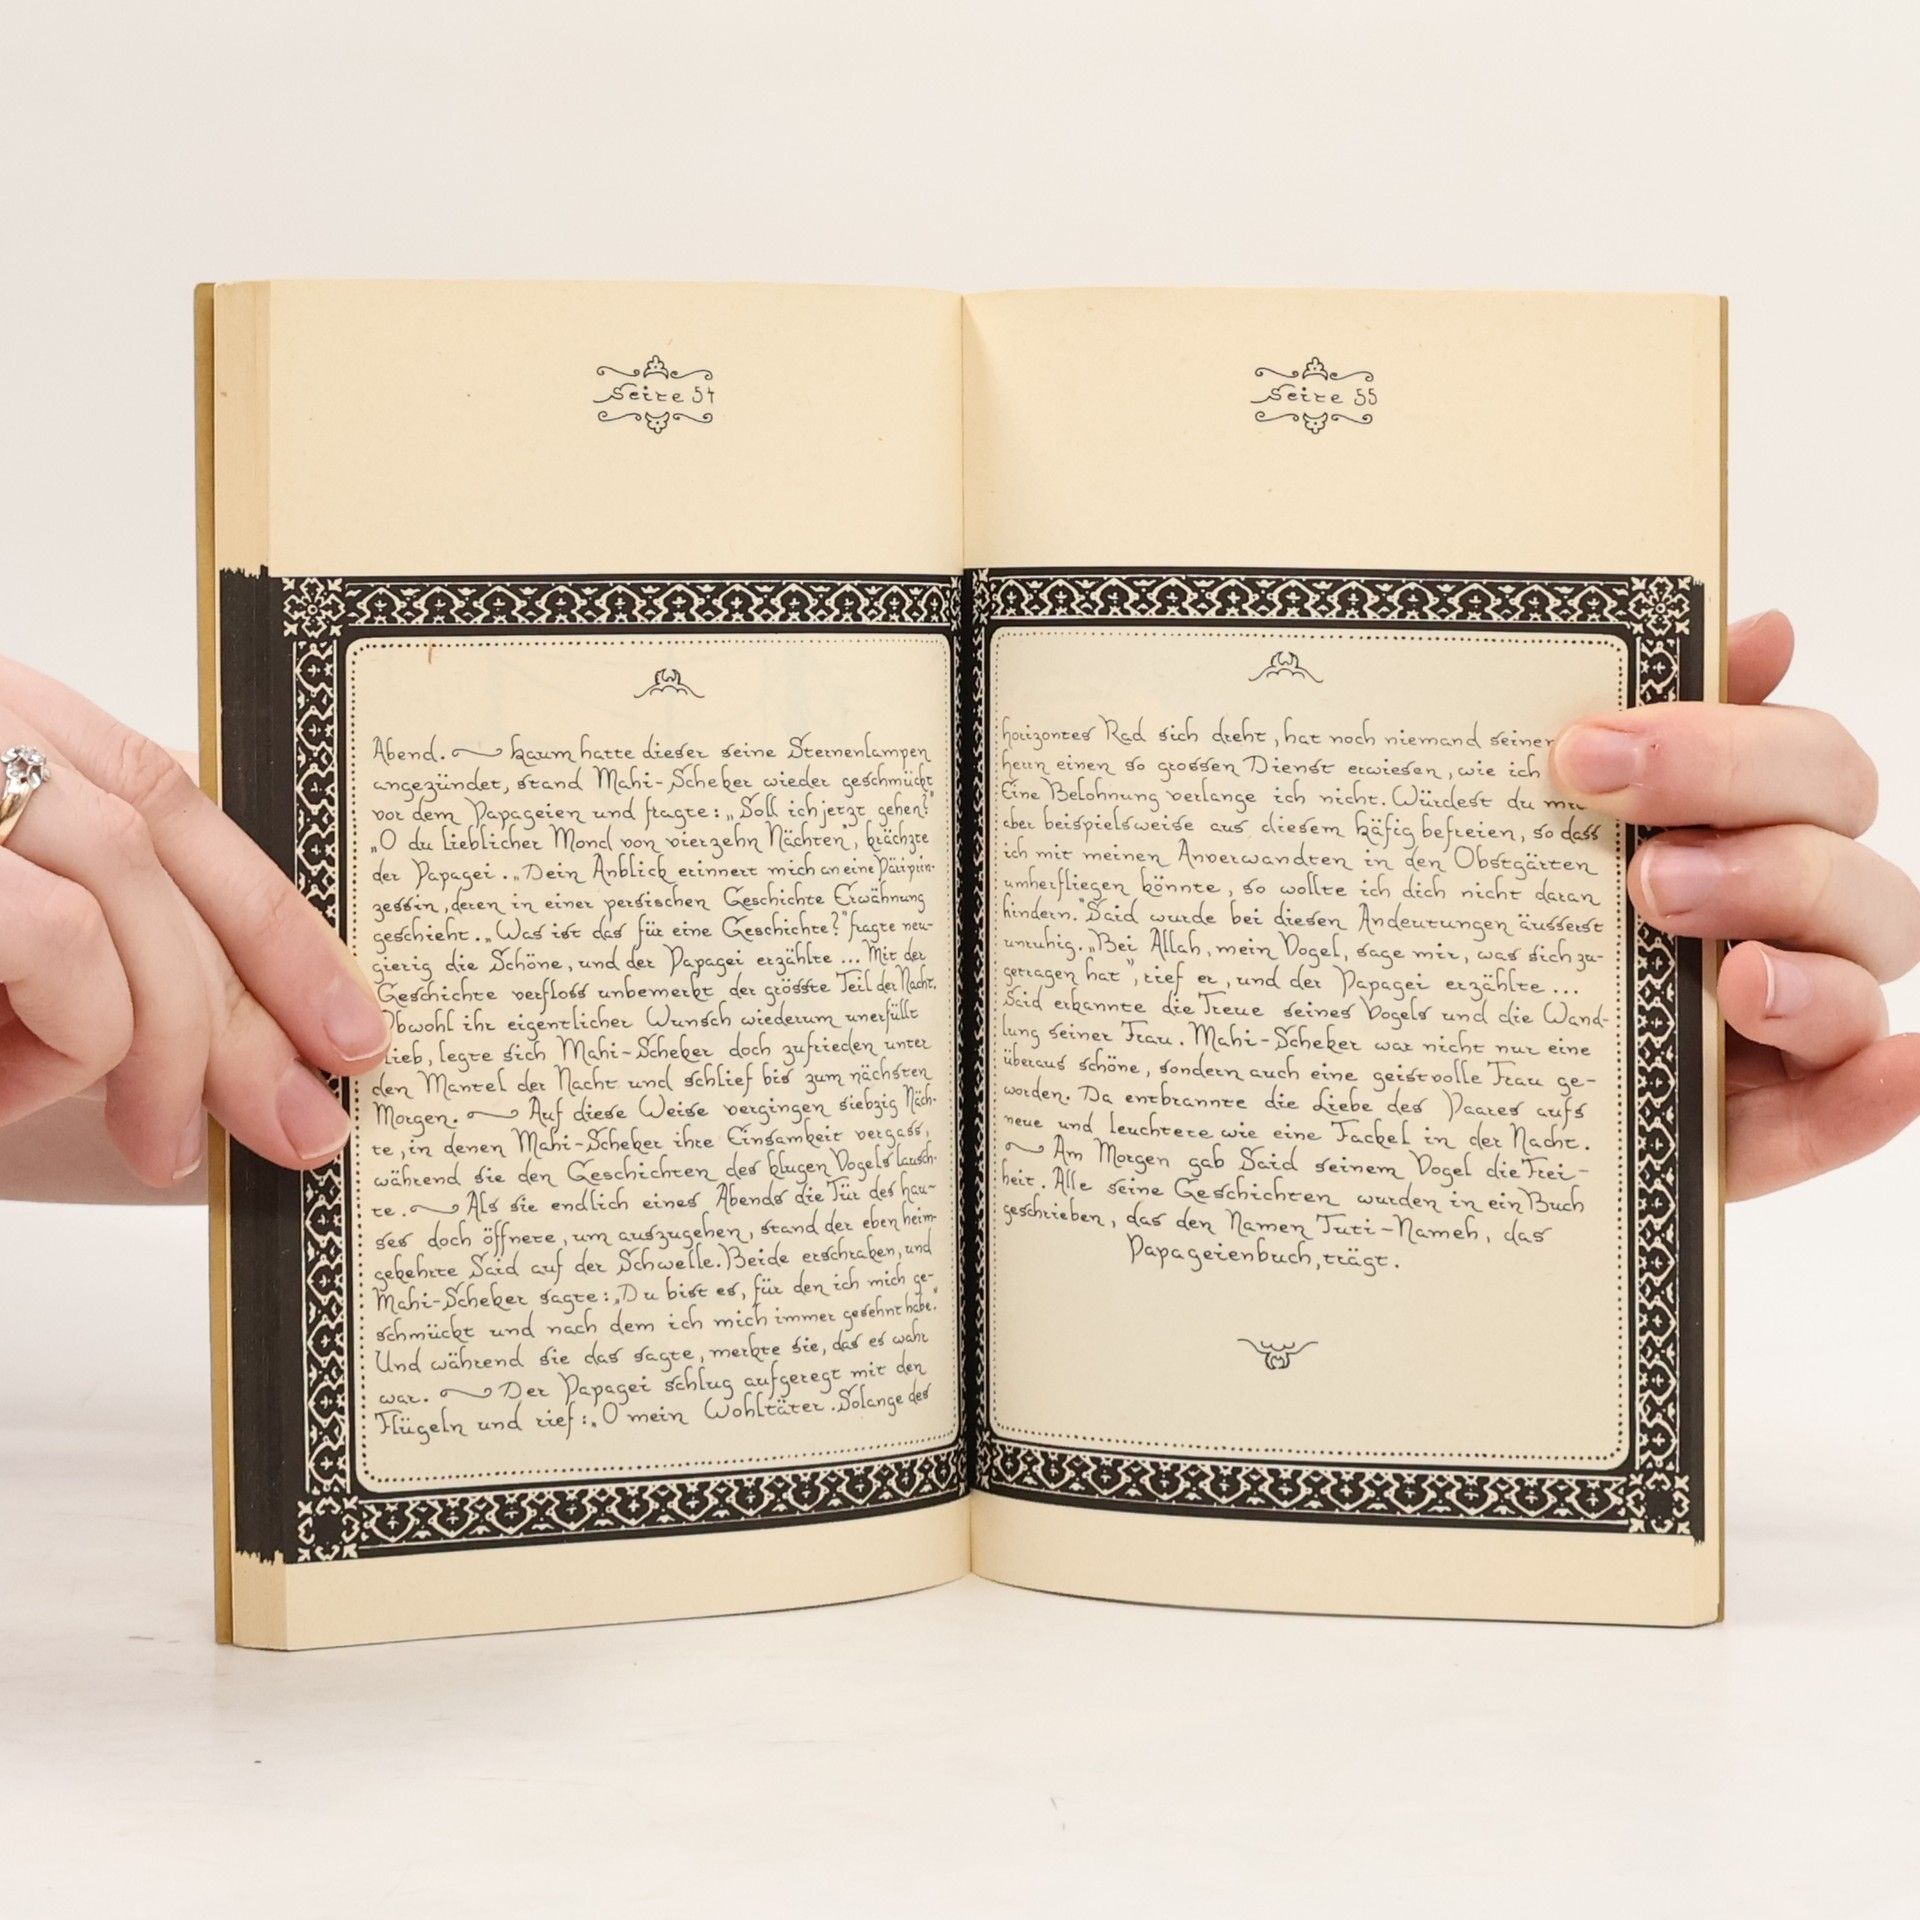 Seite 54
Abend. Kaum hatte dieser seine Sternenlampen
angezündet, stand Mahi-Scheker wieder geschmückt
vor dem Papageien und fragte: „Soll ich jetzt gehen?"
„O du lieblicher Mond von vierzehn Nächten", krächzte
der Papagei. „Dein Anblick erinnert mich an eine Päriprin-
zessin, deren in einer persischen Geschichte Erwähnung
geschieht. „Was ist das für eine Geschichte?" fragte neu-
gierig die Schöne, und der Papagei erzählte ... Mit der
Geschichte verfloss unbemerkt der grösste Teil der Nacht.
Obwohl ihr eigentlicher Wunsch wiederum unerfüllt
lieb, legte sich Mahi-Scheker doch zufrieden unter
den Mantel der Nacht und schlief bis zum nächsten
Morgen. Auf diese Weise vergingen siebzig Näch-
te, in denen Mahi-Scheker ihre Einsamkeit vergass,
während sie den Geschichten des klugen Vogels lausch-
te. Als sie endlich eines Abends die Tür des Hau-
ses doch öffnete, um auszugehen, stand der eben heim-
gekehrte Said auf der Schwelle. Beide erschraken, und
Mahi-Scheker sagte: „Du bist es, für den ich mich ge-
schmückt und nach dem ich mich immer gesehnt habe."
Und während sie das sagte, merkte sie, das es wahr
war. Der Papagei schlug aufgeregt mit den
Flügeln und rief: „O mein Wohltäter. Solange des
Seite 55
horizontes Rad sich dreht, hat noch niemand seinen
herrn einen so grossen Dienst erwiesen, wie ich
Eine Belohnung verlange ich nicht. Würdest du mich
aber beispielsweise aus diesem Käfig befreien, so dass
ich mit meinen Anverwandten in den Obstgärten
umherfliegen könnte, so wollte ich dich nicht daran
hindern." Said wurde bei diesen Andeutungen äusserst
unruhig. „Bei Allah, mein Vogel, sage mir, was sich zu-
getragen hat", rief er, und der Papagei erzählte ...
Said erkannte die Treue seines Vogels und die Wand-
lung seiner Frau. Mahi-Scheker war nicht nur eine
überaus schöne, sondern auch eine geistvolle Frau ge-
worden. Da entbrannte die Liebe des Paares aufs
neue und leuchtete wie eine Fackel in der Nacht.
Am Morgen gab Said seinem Vogel die Frei-
heit. Alle seine Geschichten wurden in ein Buch
geschrieben, das den Namen Tuti-Nameh, das
Papageienbuch, trägt.